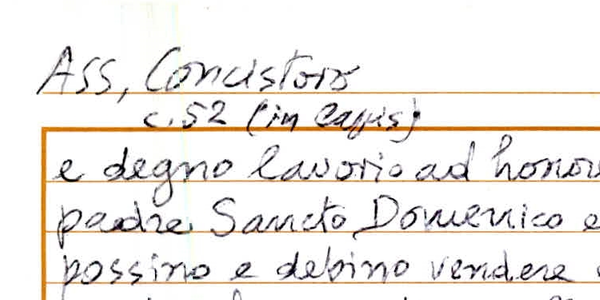 ASS, Concistoro
c. 52 (in Capsis)
e degno lavorio ad honor
padre Sancto Domenico e
possino e debino vendere